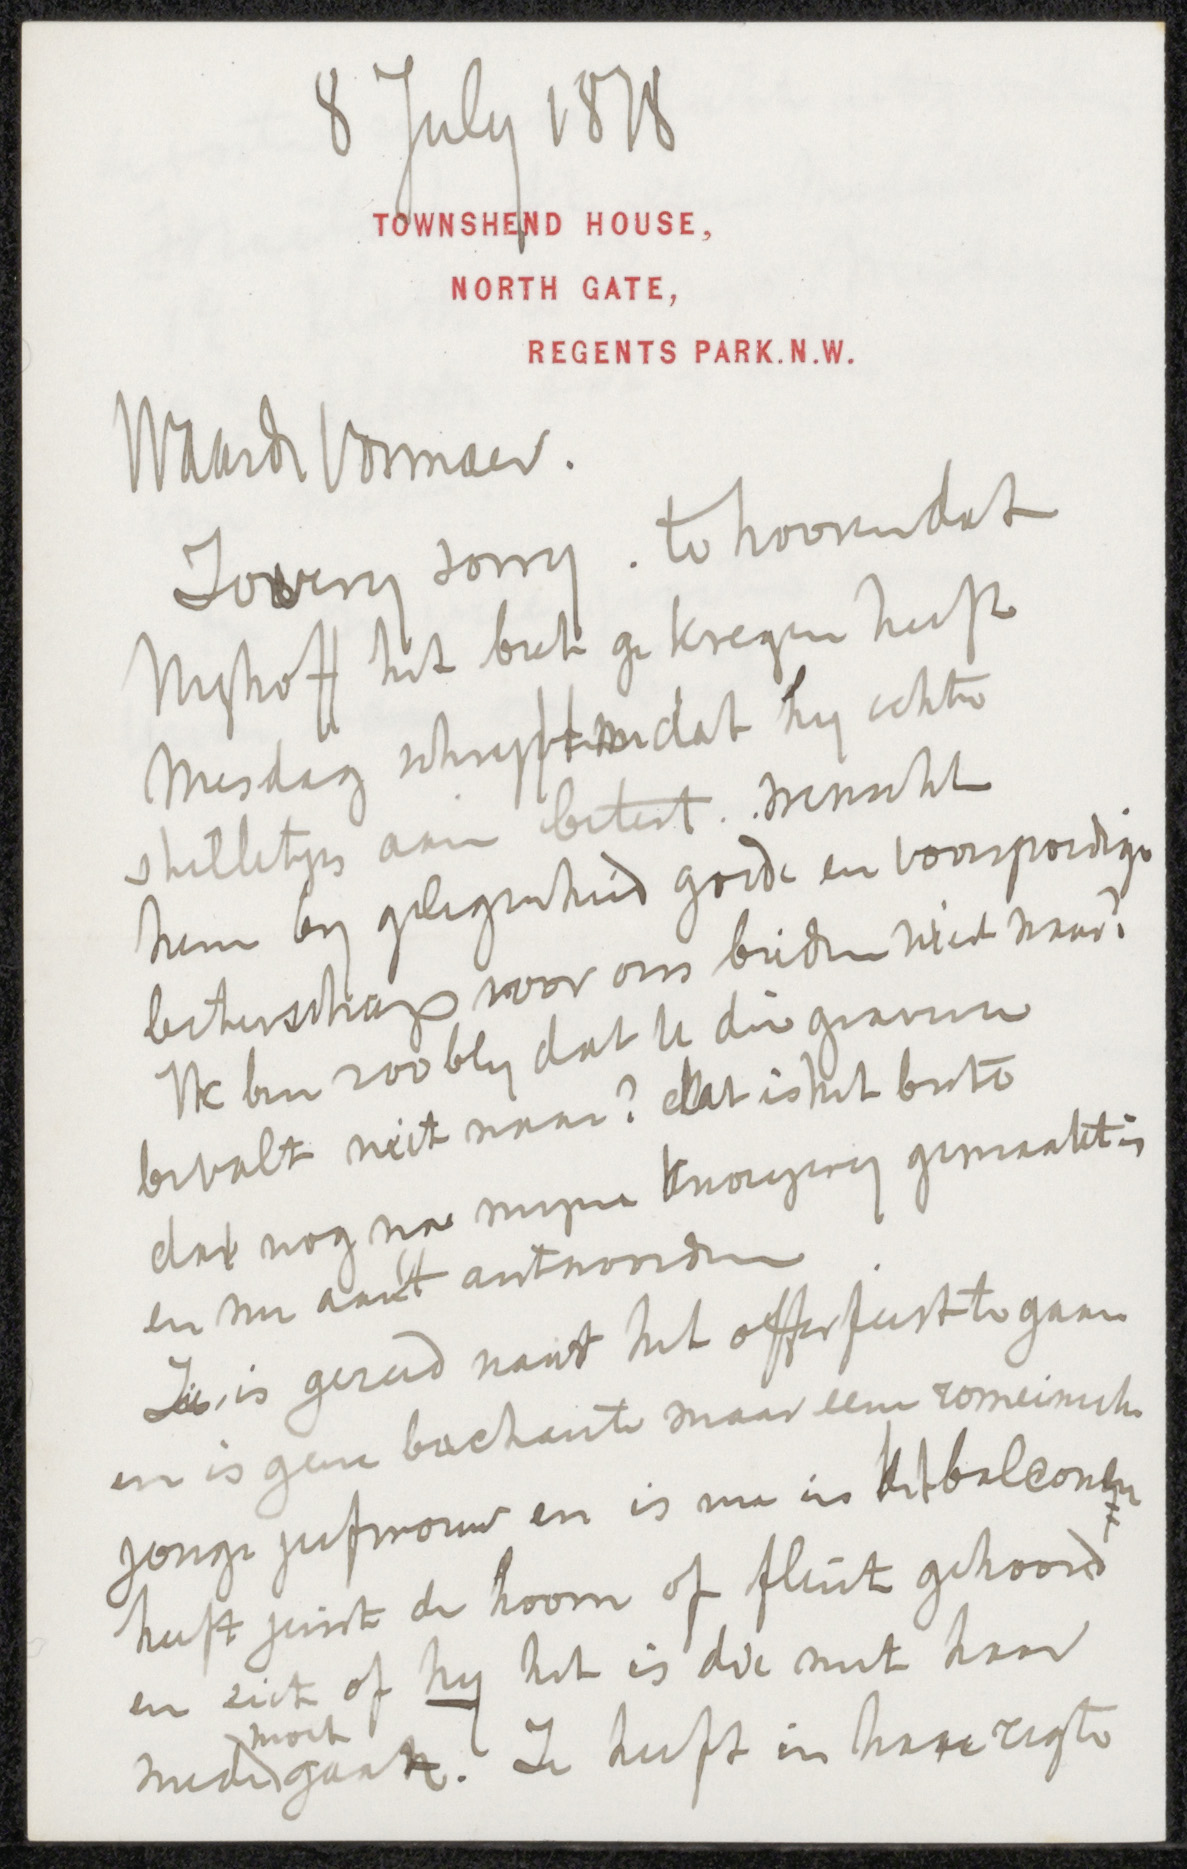 8 July 1878
TOWNSHEND HOUSE,
NORTH GATE,
REGENTS PARK. N.W.
Waarde Vosmaer.
Zo very sorry. te hooren dat
Nyhoff het beet gekregen heeft
Mesdag schryft me dat hy echte
skilletjes aan betert. wenscht
hem by gelegenheid goede en voorspoedige
beterschap voor ons beiden niet waar?
Ik ben zoo bly dat U die gravure
bevalt niet waar? dat is het beste
dat nog na myne gemaakt is
en nu aan't antwoorden
Ze is gereed naar het offerfeest te gaan
en is geen bachante maar eene romeinsche
jonge jufvrouw en is nu in het balcon en
heeft juist de hoorn of fluit gehoord
en ziet of hy het is die met haar
mede moet gaan. Ze heeft in haare regte